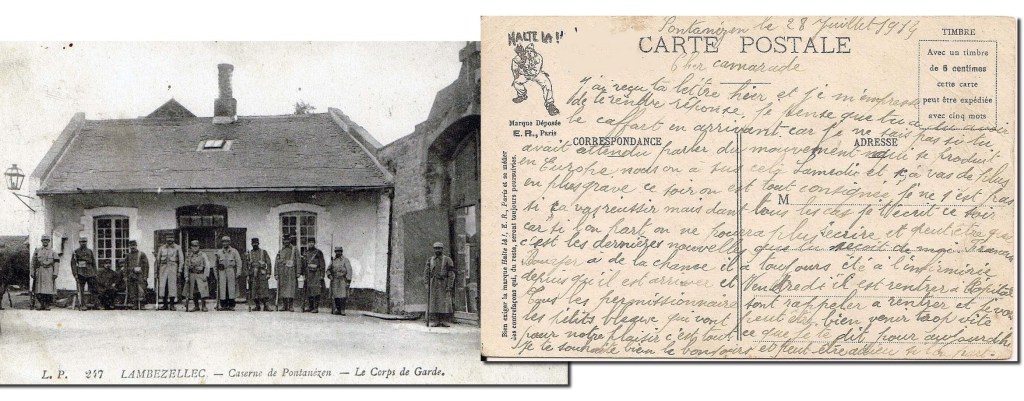 L. P. 247 LAMBEZELLEC. — Caserne de Pontanézen. — Le Corps de Garde.
Pontanézen le 28 Juillet 1914
HALTE LA !!
CARTE POSTALE
Cher camarade
TIMBRE
Avec un timbre
de 5 centimes
cette carte
peut être expédiée
avec cinq mots
Marque Déposée
E. R., Paris
CORRESPONDANCE
ADRESSE
M
Bien exiger la marque Halte là !, E. R., Paris et se méfier
des contrefaçons qui, du reste, seront toujours poursuivies.
J'ai reçu ta lettre hier et je m'empresse
de te rendre réponse. Je pense que tu a du avoir
le caffart en arrivant car je ne sais pas si tu
avait attendu parler du mouvement qui se produit
en Europe nous on a su cela Samedie et ça vas de plus
en plus grave ce soir on est tout consignés je ne s'est pas
si ça vas réussir mais dant tous les cas je t'écrit ce soir
car si l'on part on ne poura plus écrire et peut être que
c'est les dernières nouvelles que tu de moi
a de la chance il a toujours été à l'enfirmerie
depuis qu'il est arriver et Vendredi il est rentrer à l'opital
tous les permissionnaire sont rappeler a rentrer et
les petits bleque qui vont peut être bien venir trop vite
pour notre plaisir c'est tout ce que dit pour aujourdh
je te souhaite bien le bonsoir et peut être adieu